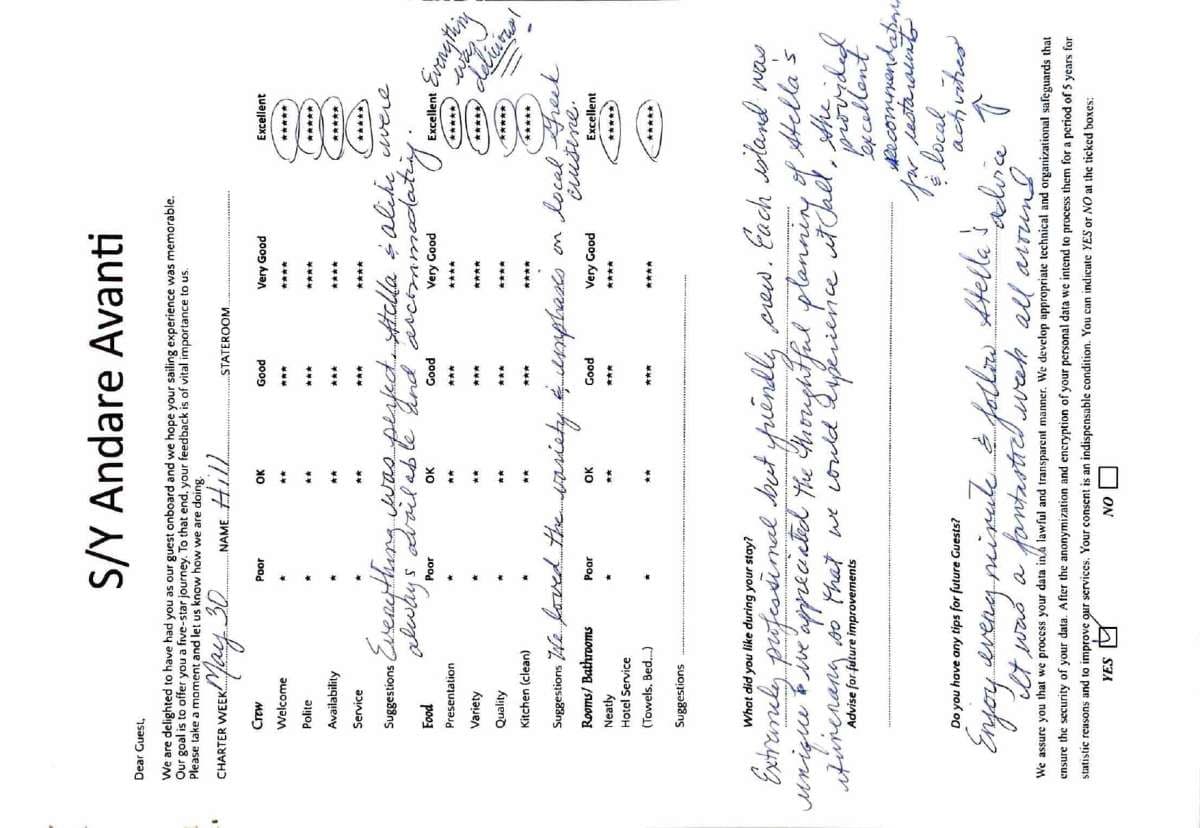 S/Y Andare Avanti
Dear Guest,
We are delighted to have had you as our guest onboard and we hope your sailing experience was memorable.
Our goal is to offer you a five-star journey. To that end, your feedback is of vital importance to us.
Please take a moment and let us know how we are doing.
CHARTER WEEK May 30 NAME Hill STATEROOM
Crew Poor OK Good Very Good Excellent
Welcome * ** *** **** *****
Polite * ** *** **** *****
Availability * ** *** **** *****
Service * ** *** **** *****
Suggestions Everything was perfect. Stella & alike were
always available and accommodating.
Food Poor OK Good Very Good Excellent Everything
was
delicious!
Presentation * ** *** **** *****
Variety * ** *** **** *****
Quality * ** *** **** *****
Kitchen (clean) * ** *** **** *****
Suggestions We loved the variety & emphasis on local Greek
cuisine.
Rooms/ Bathrooms Poor OK Good Very Good Excellent
Neatly * ** *** **** *****
Hotel Service
(Towels, Bed...) * ** *** **** *****
Suggestions
What did you like during your stay?
Extremely professional but friendly crew. Each island was
unique & we appreciated the thoughtful planning of Stella's
itinerary so that we would experience it all. She
provided
excellent
recommendations
for restaurants
& local
activities
Advise for future improvements
Do you have any tips for future Guests?
Enjoy every minute & follow Stella's advice
It was a fantastic week all around
We assure you that we process your data in a lawful and transparent manner. We develop appropriate technical and organizational safeguards that
ensure the security of your data. After the anonymization and encryption of your personal data we intend to process them for a period of 5 years for
statistic reasons and to improve our services. Your consent is an indispensable condition. You can indicate YES or NO at the ticked boxes:
YES NO